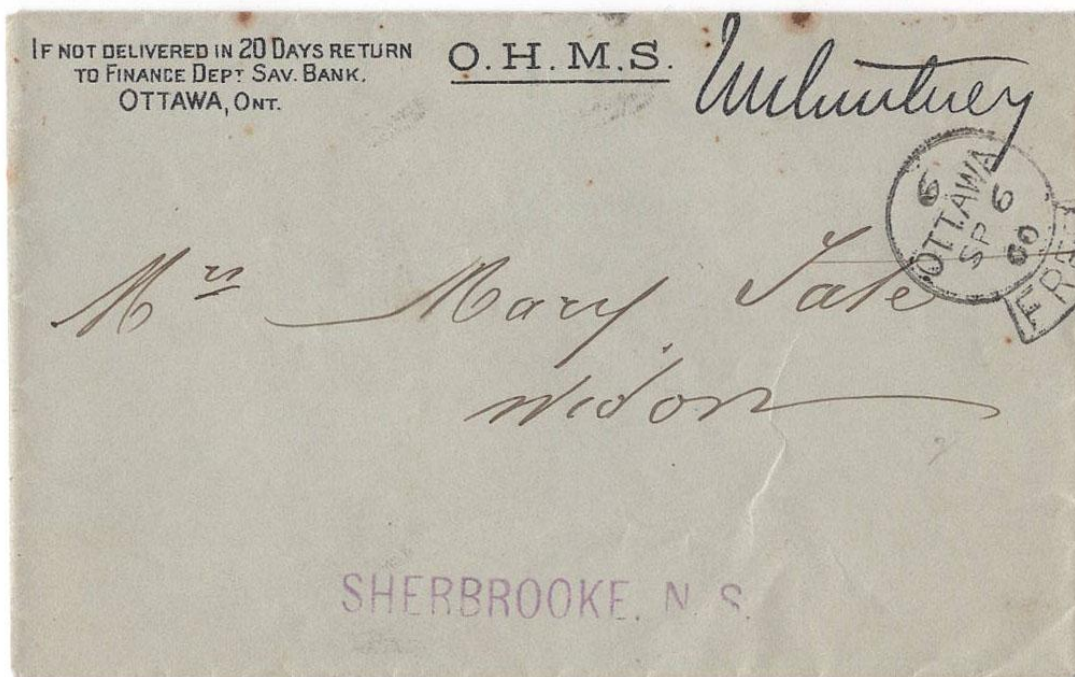 IF NOT DELIVERED IN 20 DAYS RETURN
TO FINANCE DEPT SAV. BANK.
OTTAWA, ONT.
O. H. M. S.
OTTAWA
6
SP 6
00
FREE
Mrs Mary Tate
Widow
SHERBROOKE. N. S.